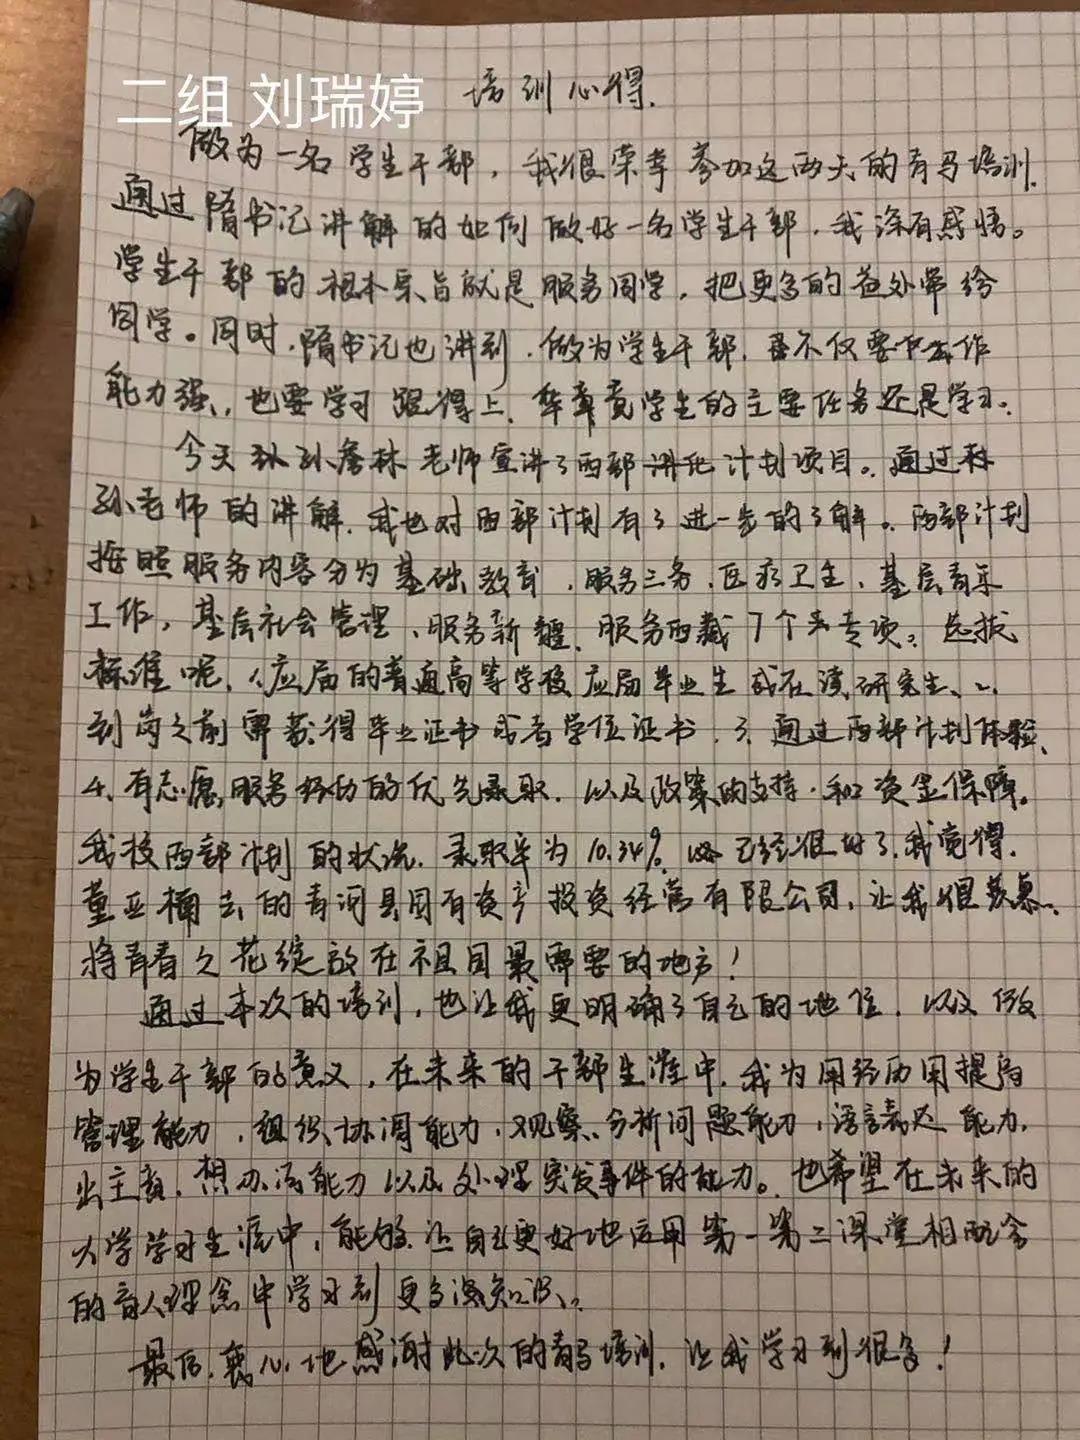 二组 刘瑞婷
培训心得.
做为一名学生干部，我很荣幸参加这两天的青马培训.
通过隋书记讲解的如何做好一名学生干部，我深有感悟。
学生干部的根本宗旨就是服务同学，把更多的益处带给
同学。同时，隋书记也讲到，做为学生干部，不仅要工作
能力强，也要学习跟得上，毕竟学生的主要任务还是学习。
今天孙唐林老师宣讲了西部计划项目。通过
孙老师的讲解，我也对西部计划有了进一步的了解。西部计划
按照服务内容分为基础教育、服务三务、医疗卫生、基层青年
工作，基层社会管理、服务新疆、服务西藏7个专项。选拔
标准呢，1、应届的普通高等学校应届毕业生或在读研究生、2、
到岗之前需获得毕业证书或者学位证书，3、通过西部计划体检、
4、有志愿服务经历的优先录取，以及政策的支持和资金保障。
我校西部计划的状况，录取率为10.34%，已经很好了，我觉得，
董亚楠去的青河县国有资产投资经营有限公司，让我很羡慕、
将青春之花绽放在祖国最需要的地方！
通过本次的培训，也让我更明确了自己的地位，以及做
为学生干部的意义，在未来的干部生涯中，我为用经历用提高
管理能力，组织协调能力，观察、分析问题能力，语言表达能力，
出主意，想办法能力以及处理突发事件的能力。也希望在未来的
大学学习生涯中，能够让自己更好地运用第一第二课堂相配合
的育人理念中学习到更多没知识。
最后，衷心地感谢此次的青马培训，让我学习到很多！